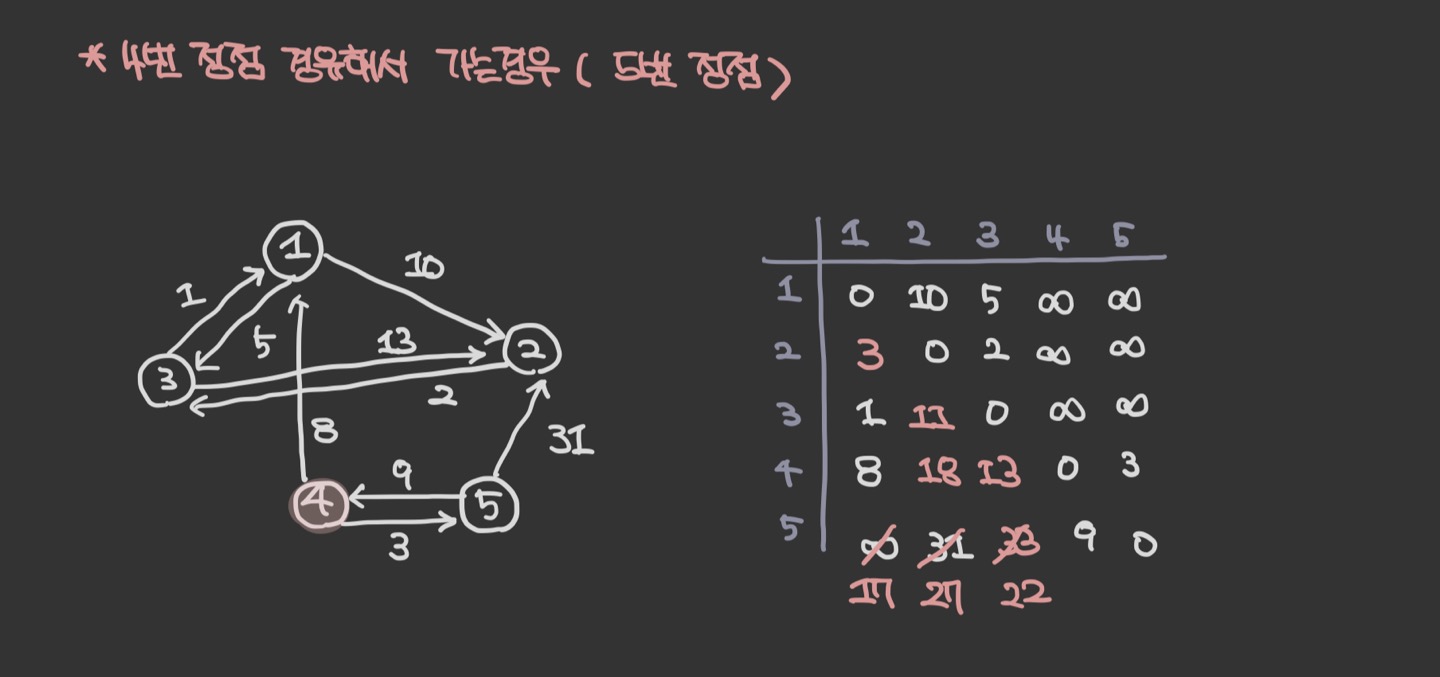 * 4번 정점 경유해서 가는경우 ( 5번 정점)
1
10
1
5
13
2
3
2
8
31
9
4
5
3
1 2 3 4 5
1 0 10 5 ∞ ∞
2 3 0 2 ∞ ∞
3 1 11 0 ∞ ∞
4 8 18 13 0 3
5 ∞ 31 33 9 0
17 27 22